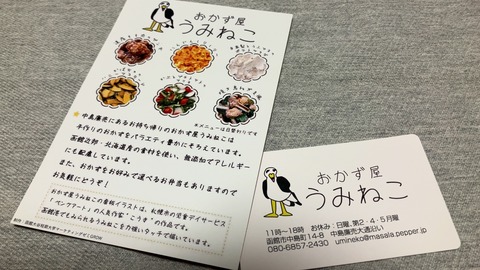 おかず屋
うみねこ
※メニューは日替わりです
中島廉売にあるお持ち帰りのおかず屋うみねこは
手作りのおかずをバラエティ豊かにそろえています。
函館近郊・北海道産の素材を使い、無添加でアレルギー
にも配慮しています。
また、おかずをお好みで選べるお弁当もありますので
お気軽にどうぞ!
おかず屋うみねこの看板イラストは、札幌市の児童デイサービス
「ペングアート」の人気作家“こうき”の作品です。
函館港でもみられるうみねこを力強いタッチで描いています。
おかず屋
うみねこ
11時〜18時 お休み：日曜、第2・4・5月曜
函館市中島町14-8 中島廉売大通沿い
080-6857-2430 umineko@masala.pepper.jp